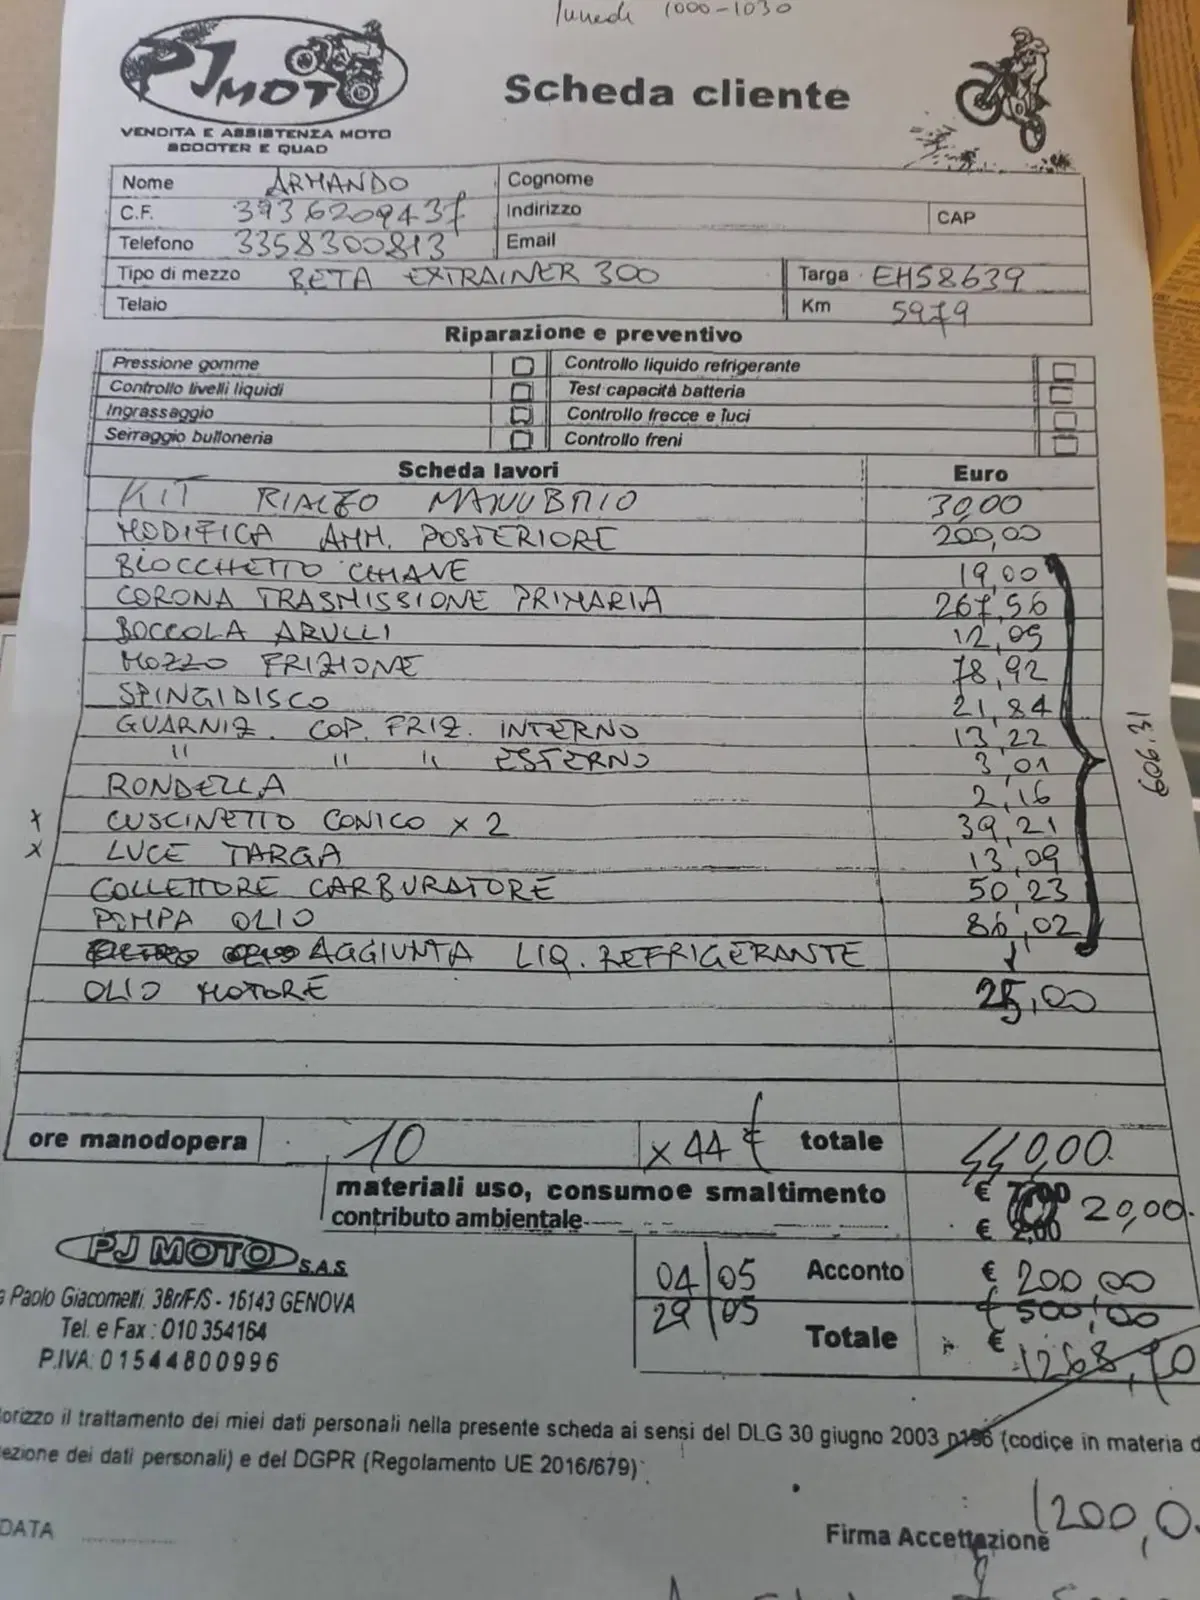 lunedi 1000-1030
PJ MOTO
VENDITA E ASSISTENZA MOTO
SCOOTER E QUAD
Scheda cliente
Nome ARMANDO Cognome
C.F. 3936209437 Indirizzo CAP
Telefono 3358300813 Email
Tipo di mezzo BETA EXTRAINER 300 Targa EH58639
Telaio Km 5979
Riparazione e preventivo
Pressione gomme Controllo liquido refrigerante
Controllo livelli liquidi Test capacità batteria
Ingrassaggio Controllo frecce e luci
Serraggio bulloneria Controllo freni
Scheda lavori Euro
KIT RIALZO MANUBRIO 30,00
MODIFICA AMM. POSTERIORE 200,00
BLOCCHETTO CHIAVE 19,00
CORONA TRASMISSIONE PRIMARIA 267,56
BOCCOLA ARULLI 12,05
MOZZO FRIZIONE 78,92
SPINGIDISCO 21,84
GUARNIZ. COP. FRIZ. INTERNO 13,22
" " " ESTERNO 3,01
RONDELLA 2,16
x CUSCINETTO CONICO x 2 39,21
x LUCE TARGA 13,09
COLLETTORE CARBURATORE 50,23
POMPA OLIO 86,02
606.31
AGGIUNTA LIQ. REFRIGERANTE
OLIO MOTORE 25,00
ore manodopera 10 x 44 € totale 440,00
materiali uso, consumoe smaltimento € 20,00
contributo ambientale €
04/05 Acconto € 200,00
29/05 € 500,00
Totale € 1268,70
PJ MOTO S.A.S.
Paolo Giacometti, 38r/F/S - 16143 GENOVA
Tel. e Fax : 010 354164
P.IVA: 01544800996
orizzo il trattamento dei miei dati personali nella presente scheda ai sensi del DLG 30 giugno 2003 n196 (codice in materia d
ezione dei dati personali) e del DGPR (Regolamento UE 2016/679)
1200,0
DATA Firma Accettazione